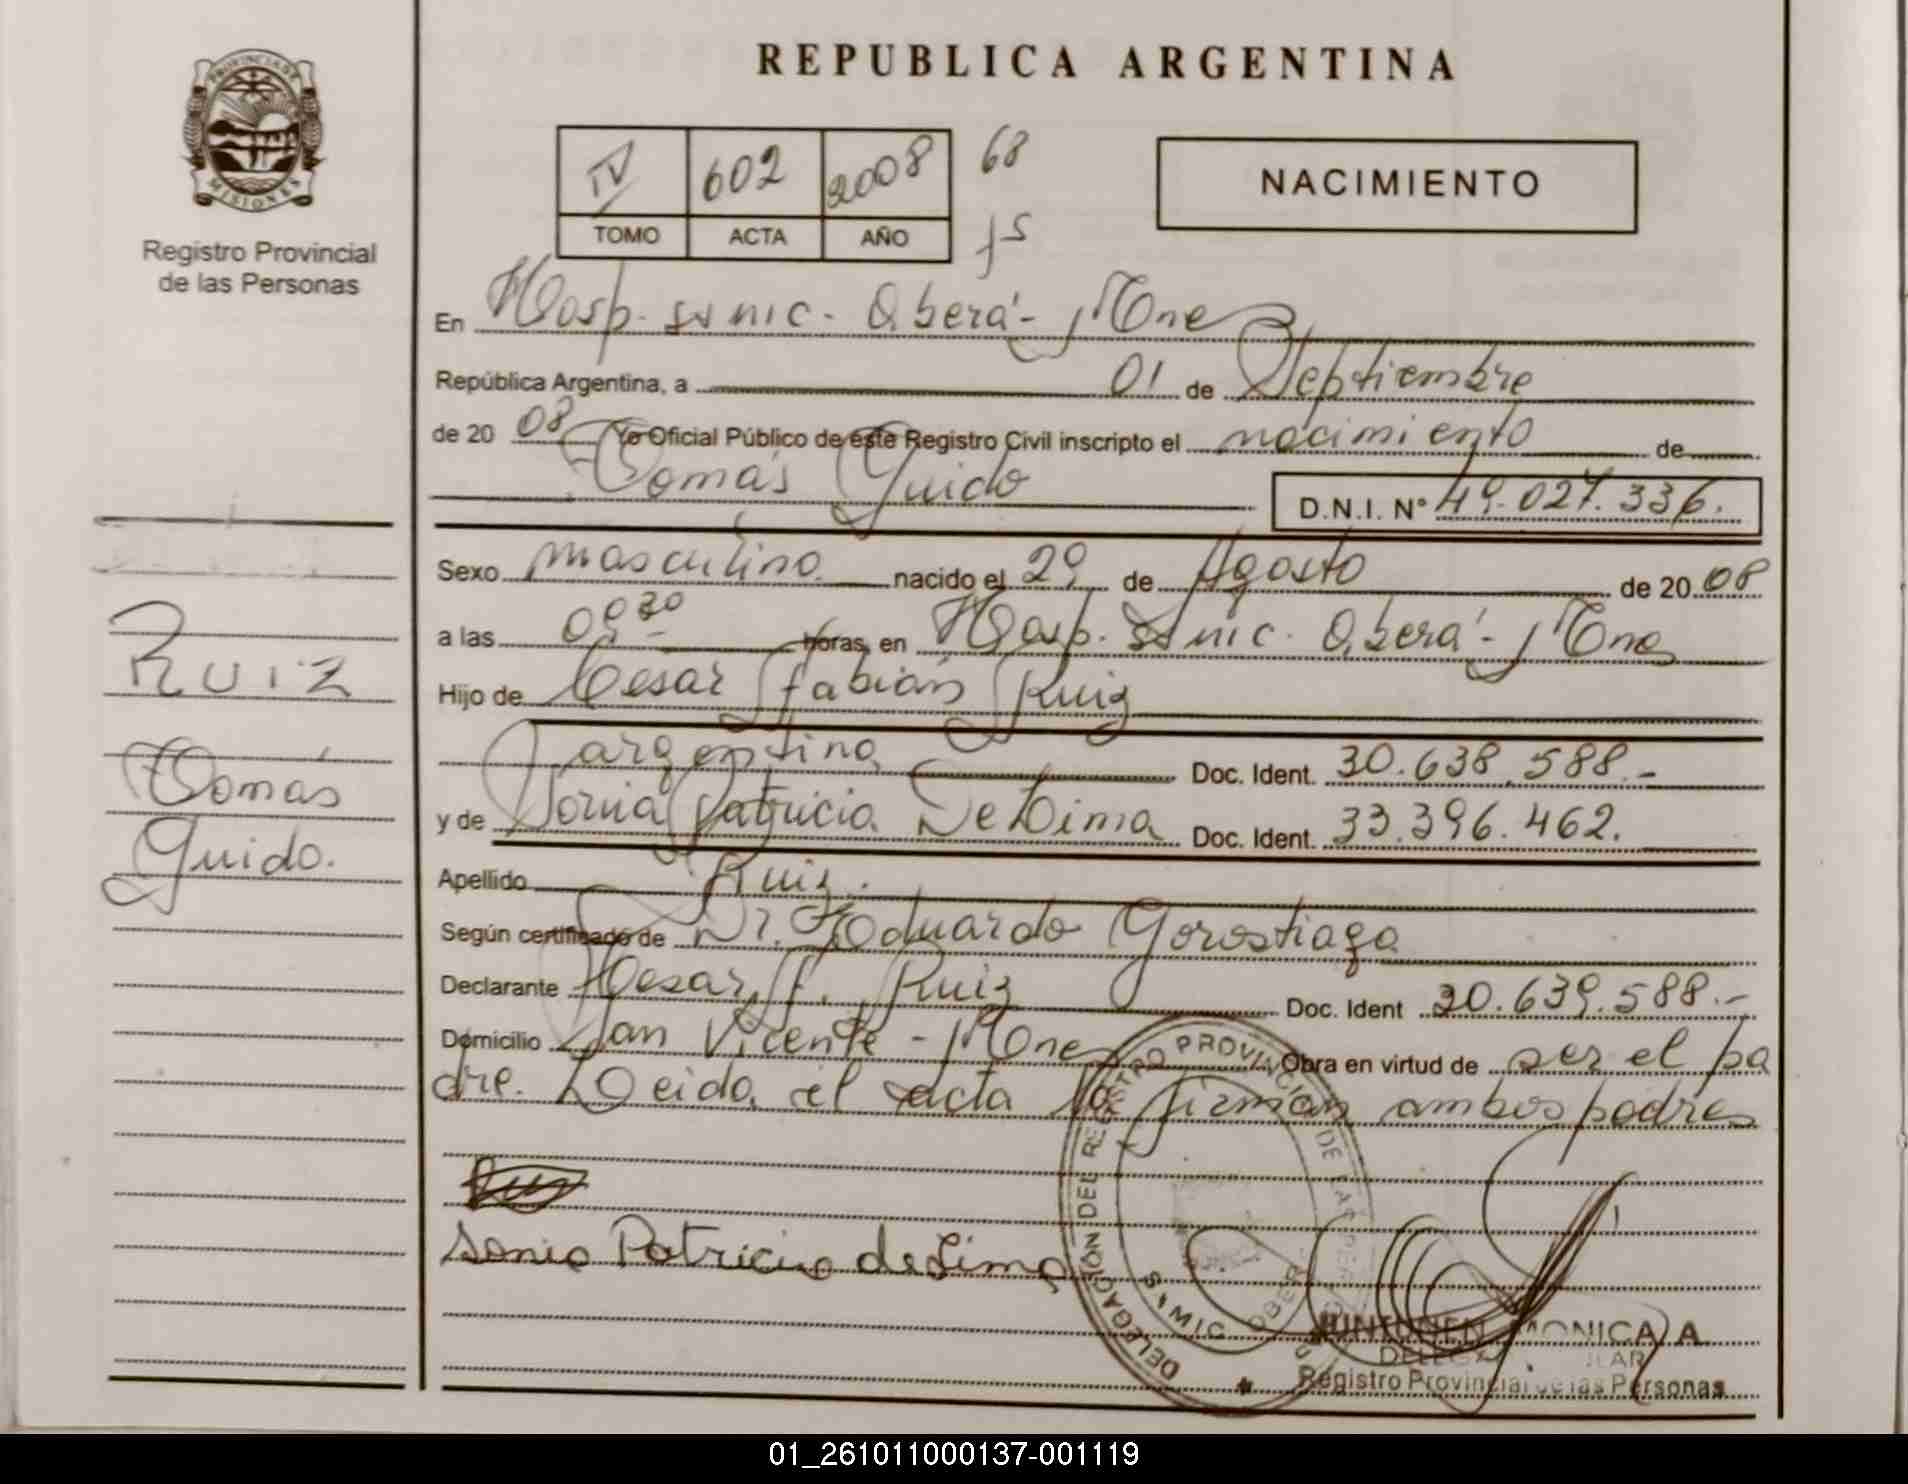 PROVINCIA DE
MISIONES
Registro Provincial
de las Personas
REPUBLICA ARGENTINA
IV 602 2008 68
TOMO ACTA AÑO 15
NACIMIENTO
En Hosp. Samic. Oberá - Mnes
República Argentina, a 01 de Septiembre
de 20 08 Yo Oficial Público de éste Registro Civil inscripto el nacimiento de
Tomás Guido
D.N.I. Nº 49.027.336.
Sexo masculino nacido el 29 de Agosto de 20 08
a las 09 30 horas, en Hosp. Samic. Oberá - Mnes
Hijo de Cesar Fabián Ruiz
argentino Doc. Ident. 30.638.588.-
y de Sonia Patricia De Lima Doc. Ident. 33.396.462.
Apellido Ruiz.
Según certificado de Dr. Eduardo Gorostiaga
Declarante Cesar F. Ruiz Doc. Ident 30.639.588.-
Domicilio San Vicente - Mnes Obra en virtud de ser el pa
dre. Leida el acta la firman ambos padres
Ruiz
Tomás
Guido.
Sonia Patricia de Lima
DELEGACIÓN DEL REGISTRO PROVINCIAL DE
MONICA A
Registro Provincial de las Personas
01_261011000137-001119